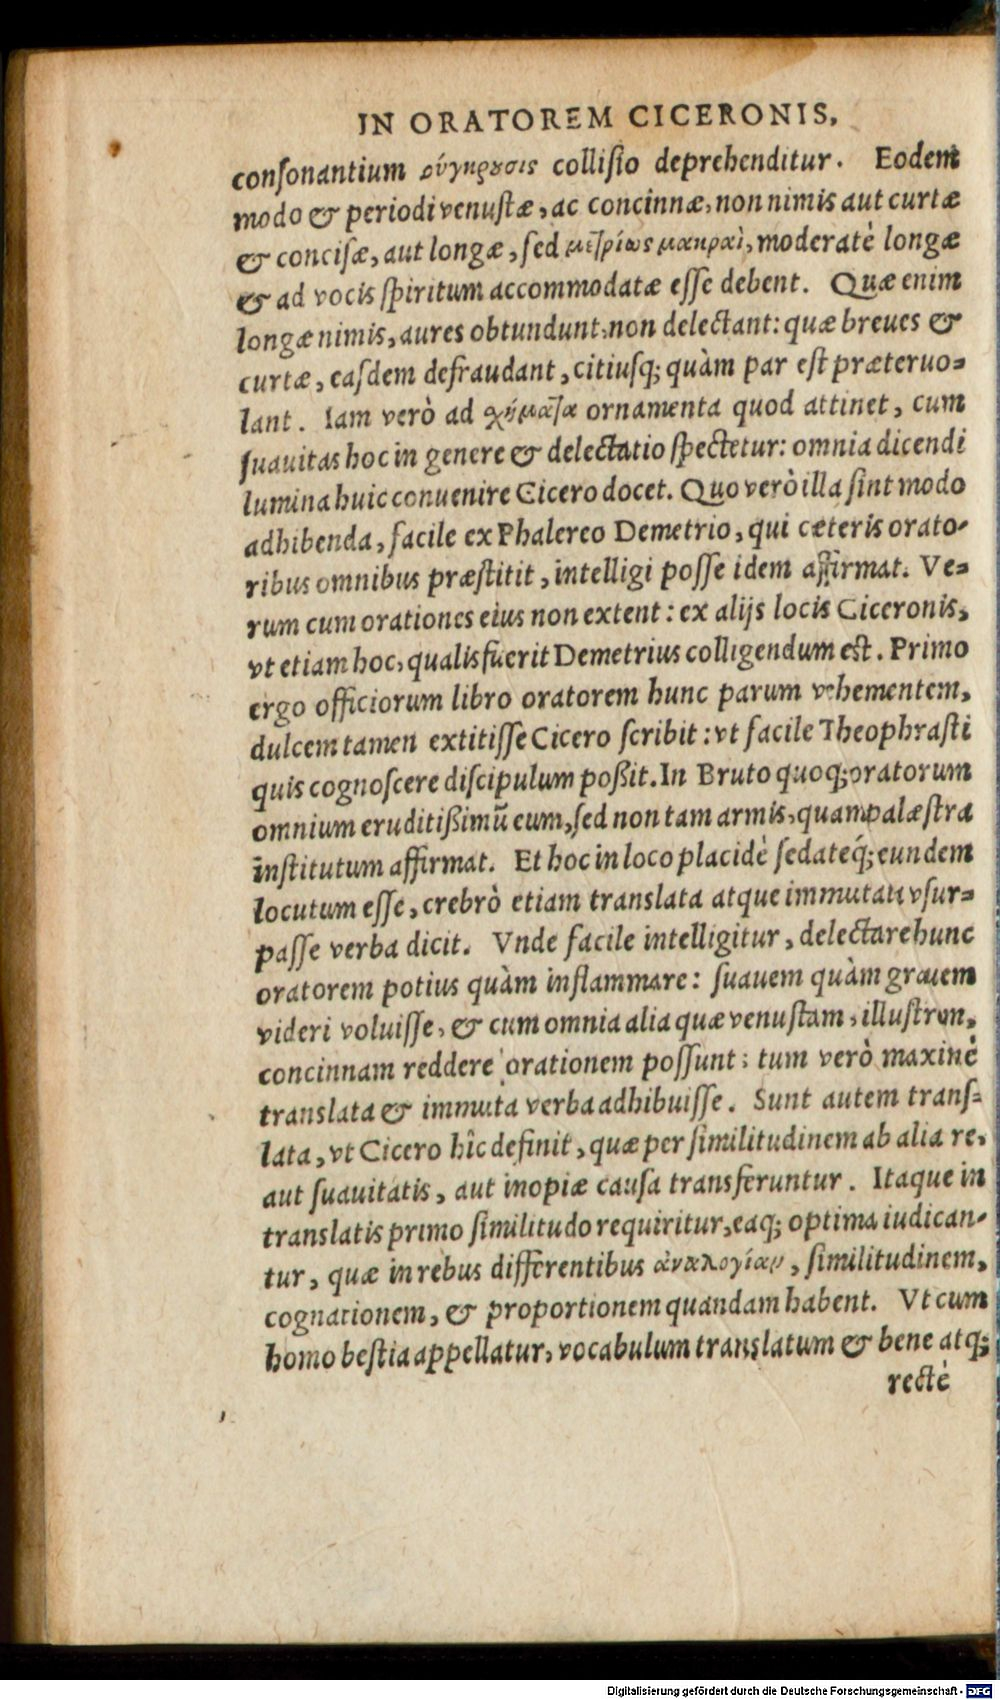 IN ORATOREM CICERONIS.
conſonantium σύγκρουσις colliſio deprehenditur. Eodem
modo & periodi venuſtæ, ac concinnæ, non nimis aut curtæ
& conciſæ, aut longæ, ſed μετρίως μακραὶ, moderatè longæ
& ad vocis ſpiritum accommodatæ eſſe debent. Quæ enim
longæ nimis, aures obtundunt, non delectant: quæ breues &
curtæ, eaſdem defraudant, citiuſq; quàm par eſt præteruo-
lant. Iam verò ad χήματα ornamenta quod attinet, cum
ſuauitas hoc in genere & delectatio ſpectetur: omnia dicendi
lumina huic conuenire Cicero docet. Quo verò illa ſint modo
adhibenda, facile ex Phalereo Demetrio, qui cæteris orato-
ribus omnibus præſtitit, intelligi poſſe idem affirmat. Ve-
rum cum orationes eius non extent: ex alijs locis Ciceronis,
vt etiam hoc, qualis fuerit Demetrius colligendum eſt. Primo
ergo officiorum libro oratorem hunc parum vehementem,
dulcem tamen extitiſſe Cicero ſcribit: vt facile Theophraſti
quis cognoſcere diſcipulum poßit. In Bruto quoq; oratorum
omnium eruditißimũ eum, ſed non tam armis, quam palæſtra
inſtitutum affirmat. Et hoc in loco placidè ſedateq́; eundem
locutum eſſe, crebrò etiam translata atque immutata vſur-
paſſe verba dicit. Vnde facile intelligitur, delectare hunc
oratorem potius quàm inflammare: ſuauem quàm grauem
videri voluiſſe, & cum omnia alia quæ venuſtam, illuſtrem,
concinnam reddere orationem poſſunt: tum verò maximè
translata & immutata verba adhibuiſſe. Sunt autem tranſ-
lata, vt Cicero hîc definit, quæ per ſimilitudinem ab alia re,
aut ſuauitatis, aut inopiæ cauſa transferuntur. Itaque in
translatis primo ſimilitudo requiritur, eaq; optima iudican-
tur, quæ in rebus differentibus ἀναλογίαν, ſimilitudinem,
cognationem, & proportionem quandam habent. Vt cum
homo beſtia appellatur, vocabulum translatum & bene atq;
rectè
Digitalisierung gefördert durch die Deutsche Forschungsgemeinschaft - DFG